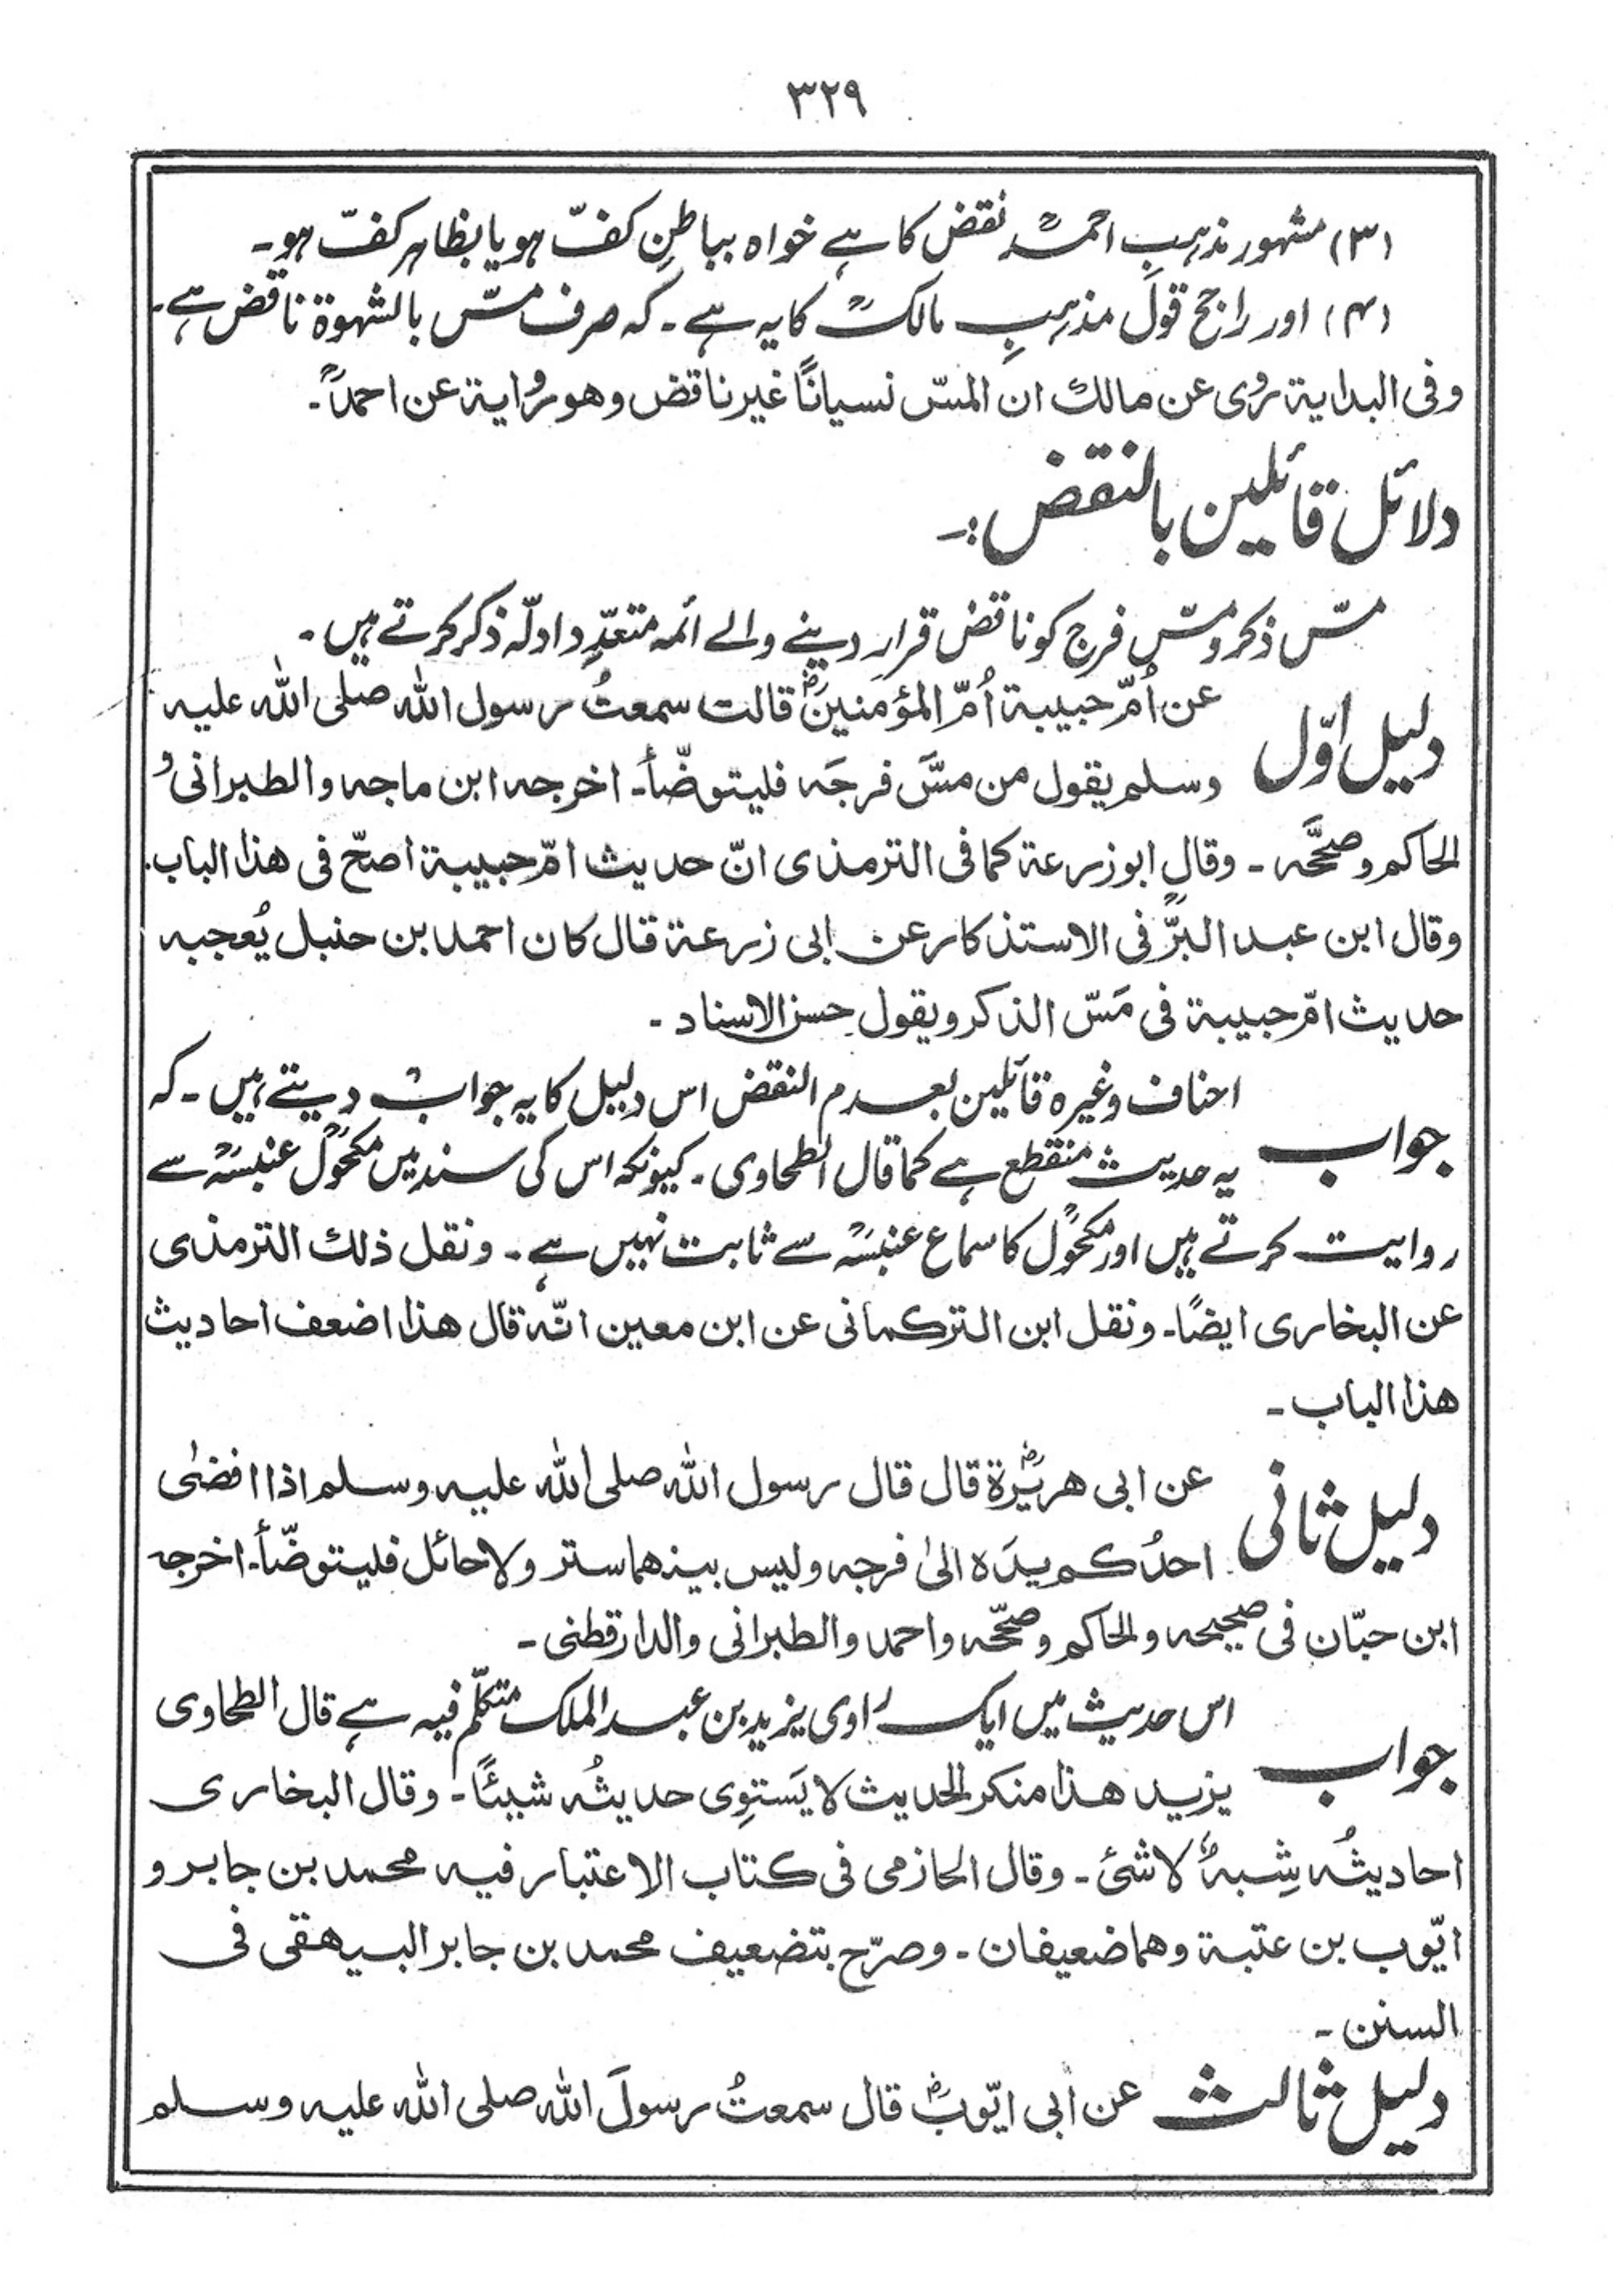 ۳۲۹
(۳) مشہور مذہبِ احمدؒ نقض کا ہے خواہ بباطنِ کفّ ہو یا بظاہر کفّ ہو۔
(۴) اور راجح قول مذہبِ مالکؒ کا یہ ہے ۔ کہ صرف مسّ بالشہوۃ ناقض ہے۔
وفی البدایۃ رُوی عن مالک ان المسّ نسیانًا غیر ناقض وھو رِوایۃ عن احمدؒ۔
دلائل قائلین بالنقض :۔
مسّ ذکر و مسّ فرج کو ناقض قرار دینے والے ائمہ متعدّد ادلّہ ذکر کرتے ہیں ۔
دلیل اوّل عن اُمّ حبیبۃ اُمّ المؤمنینؓ قالت سمعتُ رسول اللہ صلی اللہ علیہ
وسلم یقول من مسَّ فرجَہ فلیتوضّأ۔ اخرجہ ابن ماجہ والطبرانی و
الحاکم وصحَّحہ ۔ وقال ابوزرعۃ کما فی الترمذی انّ حدیث امّ حبیبۃ اصحّ فی ھذا الباب.
وقال ابن عبد البرؒ فی الاستذکار عن ابی زرعۃ قال کان احمد بن حنبل یُعجبہ
حدیث امّ حبیبۃ فی مَسّ الذکر ویقول حسن الاسناد ۔
جواب احناف وغیرہ قائلین بعدم النقض اس دلیل کا یہ جواب دیتے ہیں ۔ کہ
یہ حدیث منقطع ہے کما قال الطحاوی ۔ کیونکہ اس کی سند میں مکحولؒ عنبسہؒ سے
روایت کرتے ہیں اور مکحولؒ کا سماع عنبسہؒ سے ثابت نہیں ہے ۔ ونقل ذلک الترمذی
عن البخاری ایضًا۔ ونقل ابن الترکمانی عن ابن معین انّہ قال ھذا اضعف احادیث
ھذا الباب ۔
دلیل ثانی عن ابی ھریرۃؓ قال قال رسول اللہ صلی اللہ علیہ وسلم اذا افضٰی
احدُکم یدَہ الیٰ فرجہ ولیس بینھما ستر ولا حائل فلیتوضّأ۔ اخرجہ
ابن حبّان فی صحیحہ والحاکم وصحّحہ واحمد والطبرانی والدارقطنی ۔
جواب اس حدیث میں ایک راوی یزید بن عبد الملک متکلّم فیہ ہے قال الطحاوی
یزید ھذا منکر الحدیث لا یَستوِی حدیثُہ شیئًا۔ وقال البخاری
احادیثُہ شِبہُ لا شئ ۔ وقال الحازمی فی کتاب الاعتبار فیہ محمد بن جابر و
ایّوب بن عتبۃ وھما ضعیفان ۔ وصرّح بتضعیف محمد بن جابر البیھقی فی
السنن ۔
دلیل ثالث عن ابی ایّوبؓ قال سمعتُ رسولَ اللہ صلی اللہ علیہ وسلم